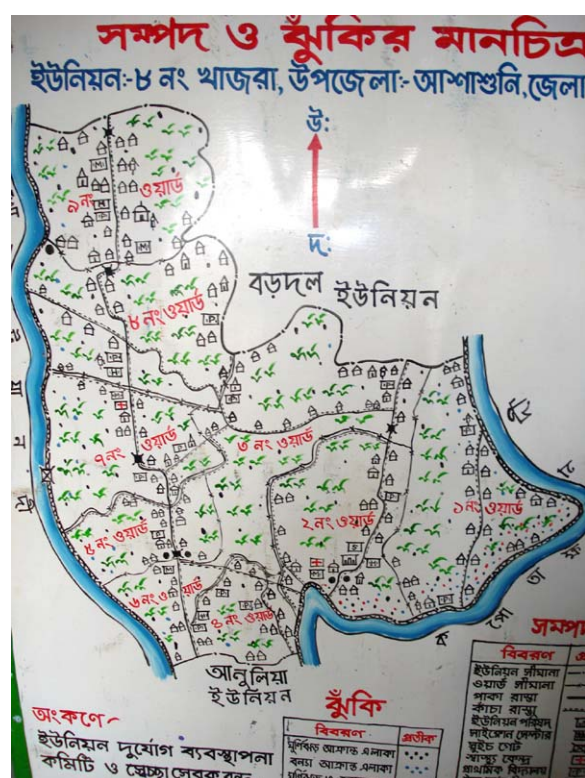 সম্পদ ও ঝুঁকির মানচিত্র
ইউনিয়ন:-৮ নং খাজরা, উপজেলা:- আশাশুনি, জেলা
উ:
দ:
৯ নং ওয়ার্ড
বড়দল ইউনিয়ন
৮ নং ওয়ার্ড
৭ নং ওয়ার্ড
৩ নং ওয়ার্ড
২ নং ওয়ার্ড
১ নং ওয়ার্ড
৬ নং ওয়ার্ড
৪ নং ওয়ার্ড
আনুলিয়া
ইউনিয়ন
অংকণে
ইউনিয়ন দুর্যোগ ব্যবস্থাপনা
কমিটি ও
ঝুঁকি
বিবরণ প্রতীক
ঘূর্ণিঝড় আক্রান্ত এলাকা
বন্যা আক্রান্ত এলাকা
সম্পদ
বিবরণ
ইউনিয়ন সীমানা
ওয়ার্ড সীমানা
পাকা রাস্তা
কাঁচা রাস্তা
ইউনিয়ন পরিষদ
সাইক্লোন সেন্টার
সুইচ গেট
স্বাস্থ্য কেন্দ্র
প্রাথমিক বিদ্যালয়